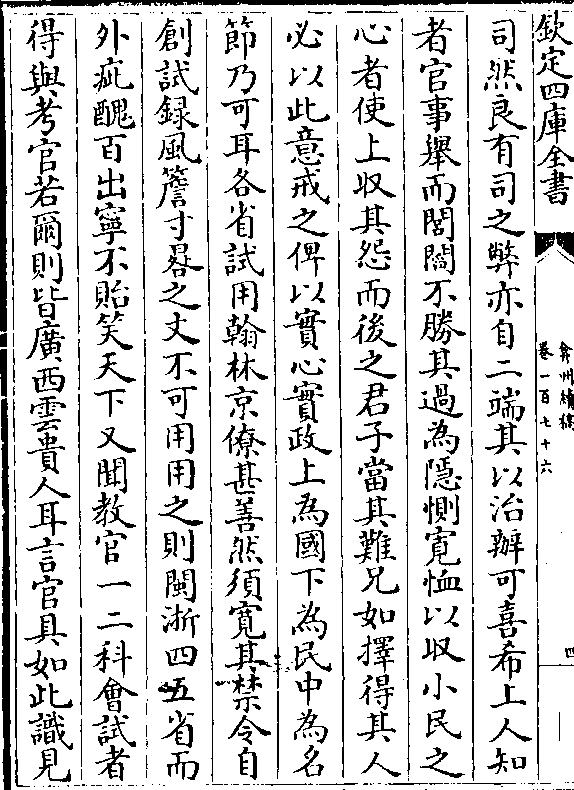 欽定四庫全書
弇州續稿
卷一百七十六
四
司然良有司之弊亦自二端其以治辦可喜希上人知
者官事舉而閭閻不勝其過為隱惻寛恤以収小民之
心者使上収其怨而後之君子當其難兄如擇得其人
必以此意戒之俾以實心實政上為國下為民中為名
節乃可耳各省試用翰林京僚甚善然須寛其禁令自
創試録風簷寸晷之丈不可用用之則閩浙四五省而
外疵醜百出寧不貽笑天下又聞教官一二科會試者
得與考官若爾則皆廣西雲貴人耳言官具如此識見